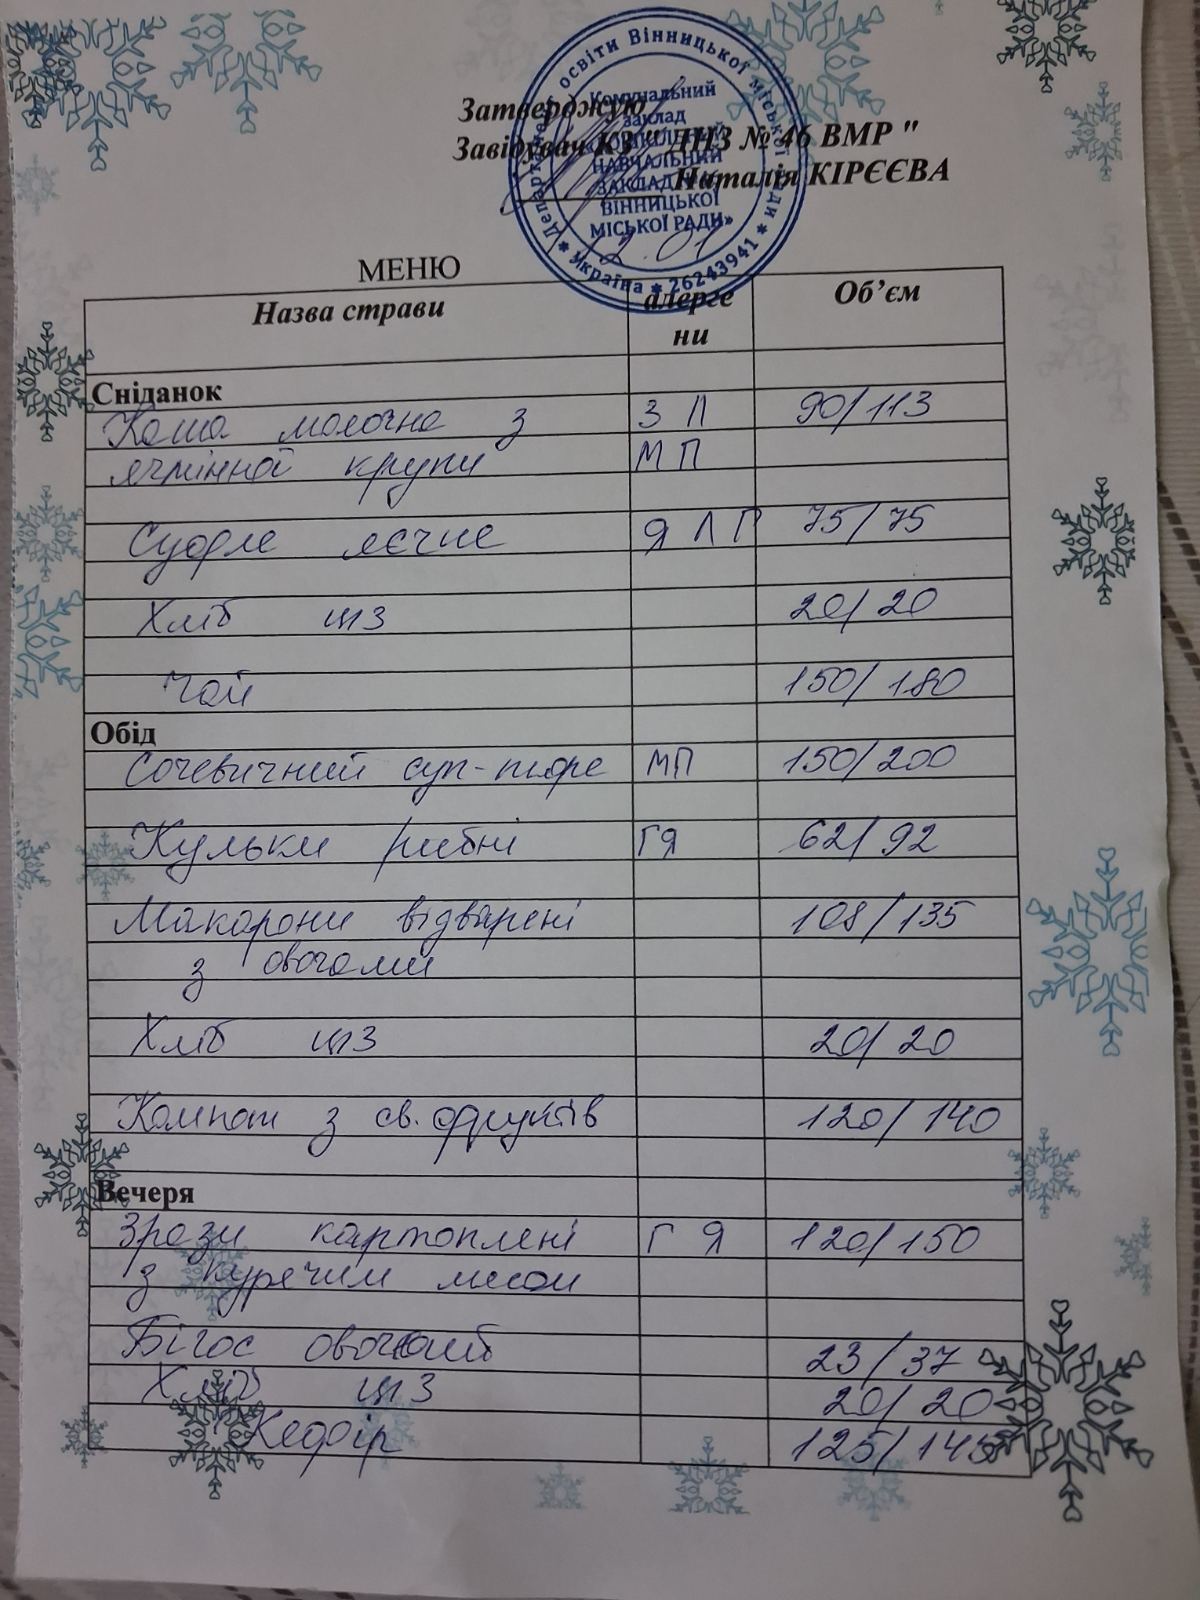 Затверджую
Завідувач КЗ " ДНЗ № 46 ВМР "
Наталія КІРЄЄВА
Департамент освіти Вінницької міської ради * Україна * 26243941 *
Комунальний
заклад
«ДОШКІЛЬНИЙ
НАВЧАЛЬНИЙ
ЗАКЛАД
ВІННИЦЬКОЇ
МІСЬКОЇ РАДИ»
12.01
МЕНЮ
Назва страви алерге Об’єм
ни
Сніданок
Каша молочна з З П 90/113
ячмінної крупи МП
Суфле яєчне Я Л Г 75/75
Хліб цз 20/20
Чай 150/180
Обід
Сочевичний суп-пюре МП 150/200
Кульки рибні ГЯ 62/92
Макарони відварені 108/135
з овочами
Хліб цз 20/20
Компот з св. фруктів 120/140
Вечеря
Зрази картоплені Г Я 120/150
з курячим мясом
Бігос овочевий 23/37
Хліб цз 20/20
Кефір 125/145